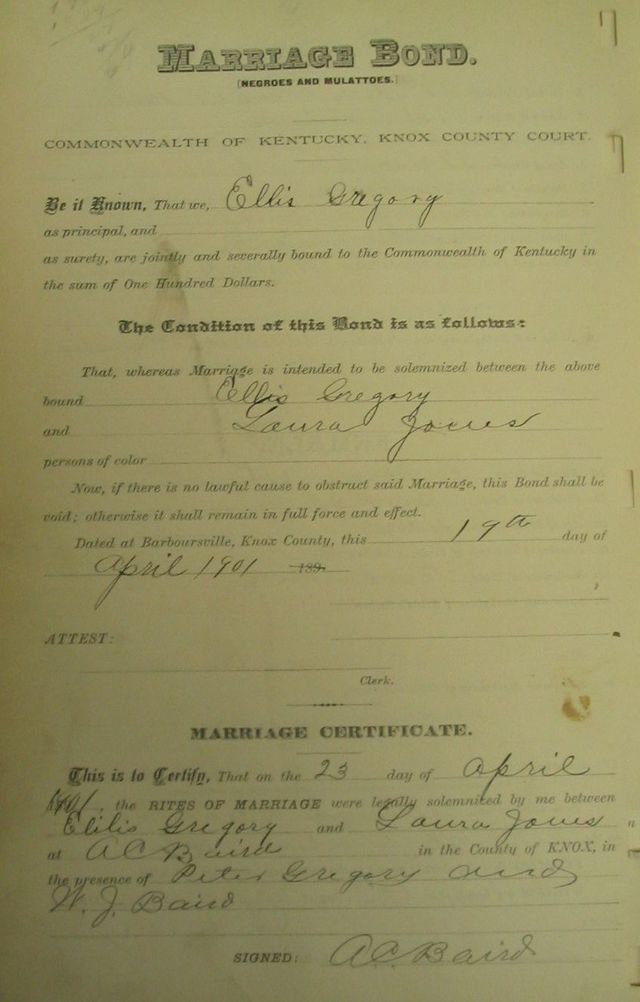 MARRIAGE BOND.
[NEGROES AND MULATTOES.]
COMMONWEALTH OF KENTUCKY, KNOX COUNTY COURT.
Be it Known, That we, Ellis Gregory
as principal, and
as surety, are jointly and severally bound to the Commonwealth of Kentucky in
the sum of One Hundred Dollars.
The Condition of this Bond is as follows:
That, whereas Marriage is intended to be solemnized between the above
bound Ellis Gregory
and Laura Jones
persons of color
Now, if there is no lawful cause to obstruct said Marriage, this Bond shall be
void; otherwise it shall remain in full force and effect.
Dated at Barboursville, Knox County, this 19th day of
April 1901 189
ATTEST:
Clerk.
MARRIAGE CERTIFICATE.
This is to Certify, That on the 23 day of April
1901, the RITES OF MARRIAGE were legally solemnized by me between
Ellis Gregory and Laura Jones
at A C Baird in the County of KNOX, in
the presence of Peter Gregory and
W. J. Baird
SIGNED: A C. Baird